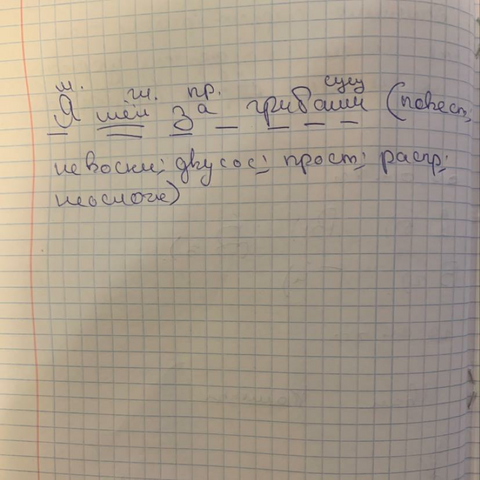 м. гл. пр. сущ
Я шёл за грибами (повест;
невоскл; двусос; прост; распр;
неослож)